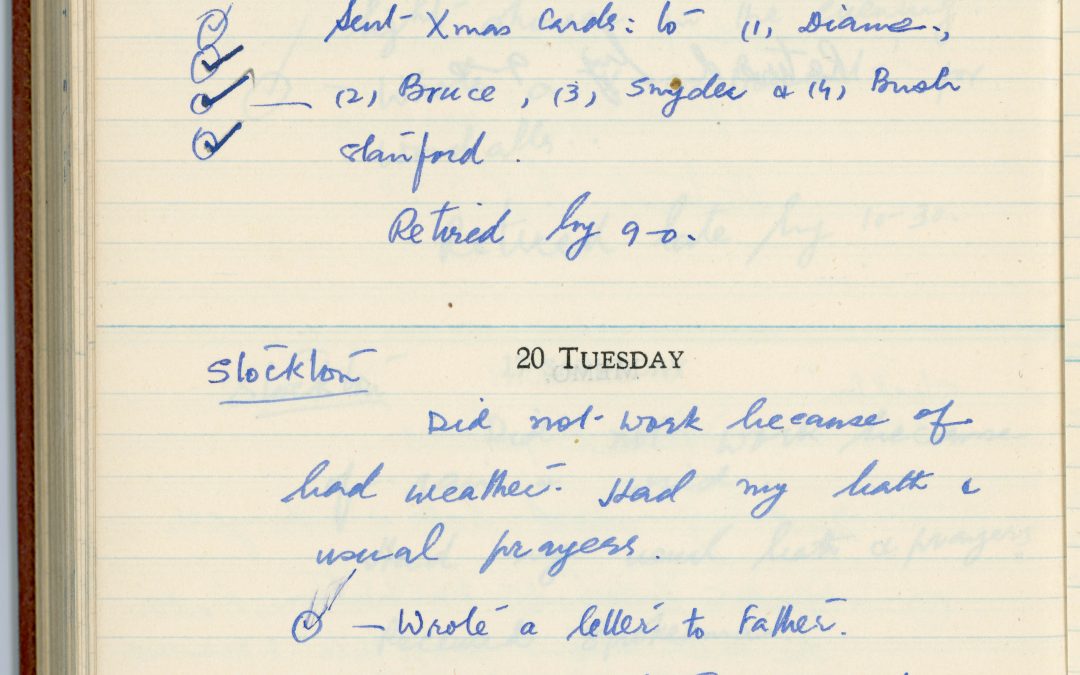 Sent Xmas Cards: to (1, Diane,
— (2, Bruce, (3, Snyder & (4, Bush
Stanford.
Retired by 9-0.
Stockton
20 TUESDAY
Did not work because of
bad weather. Had my bath &
usual prayers.
— Wrote a letter to Father.